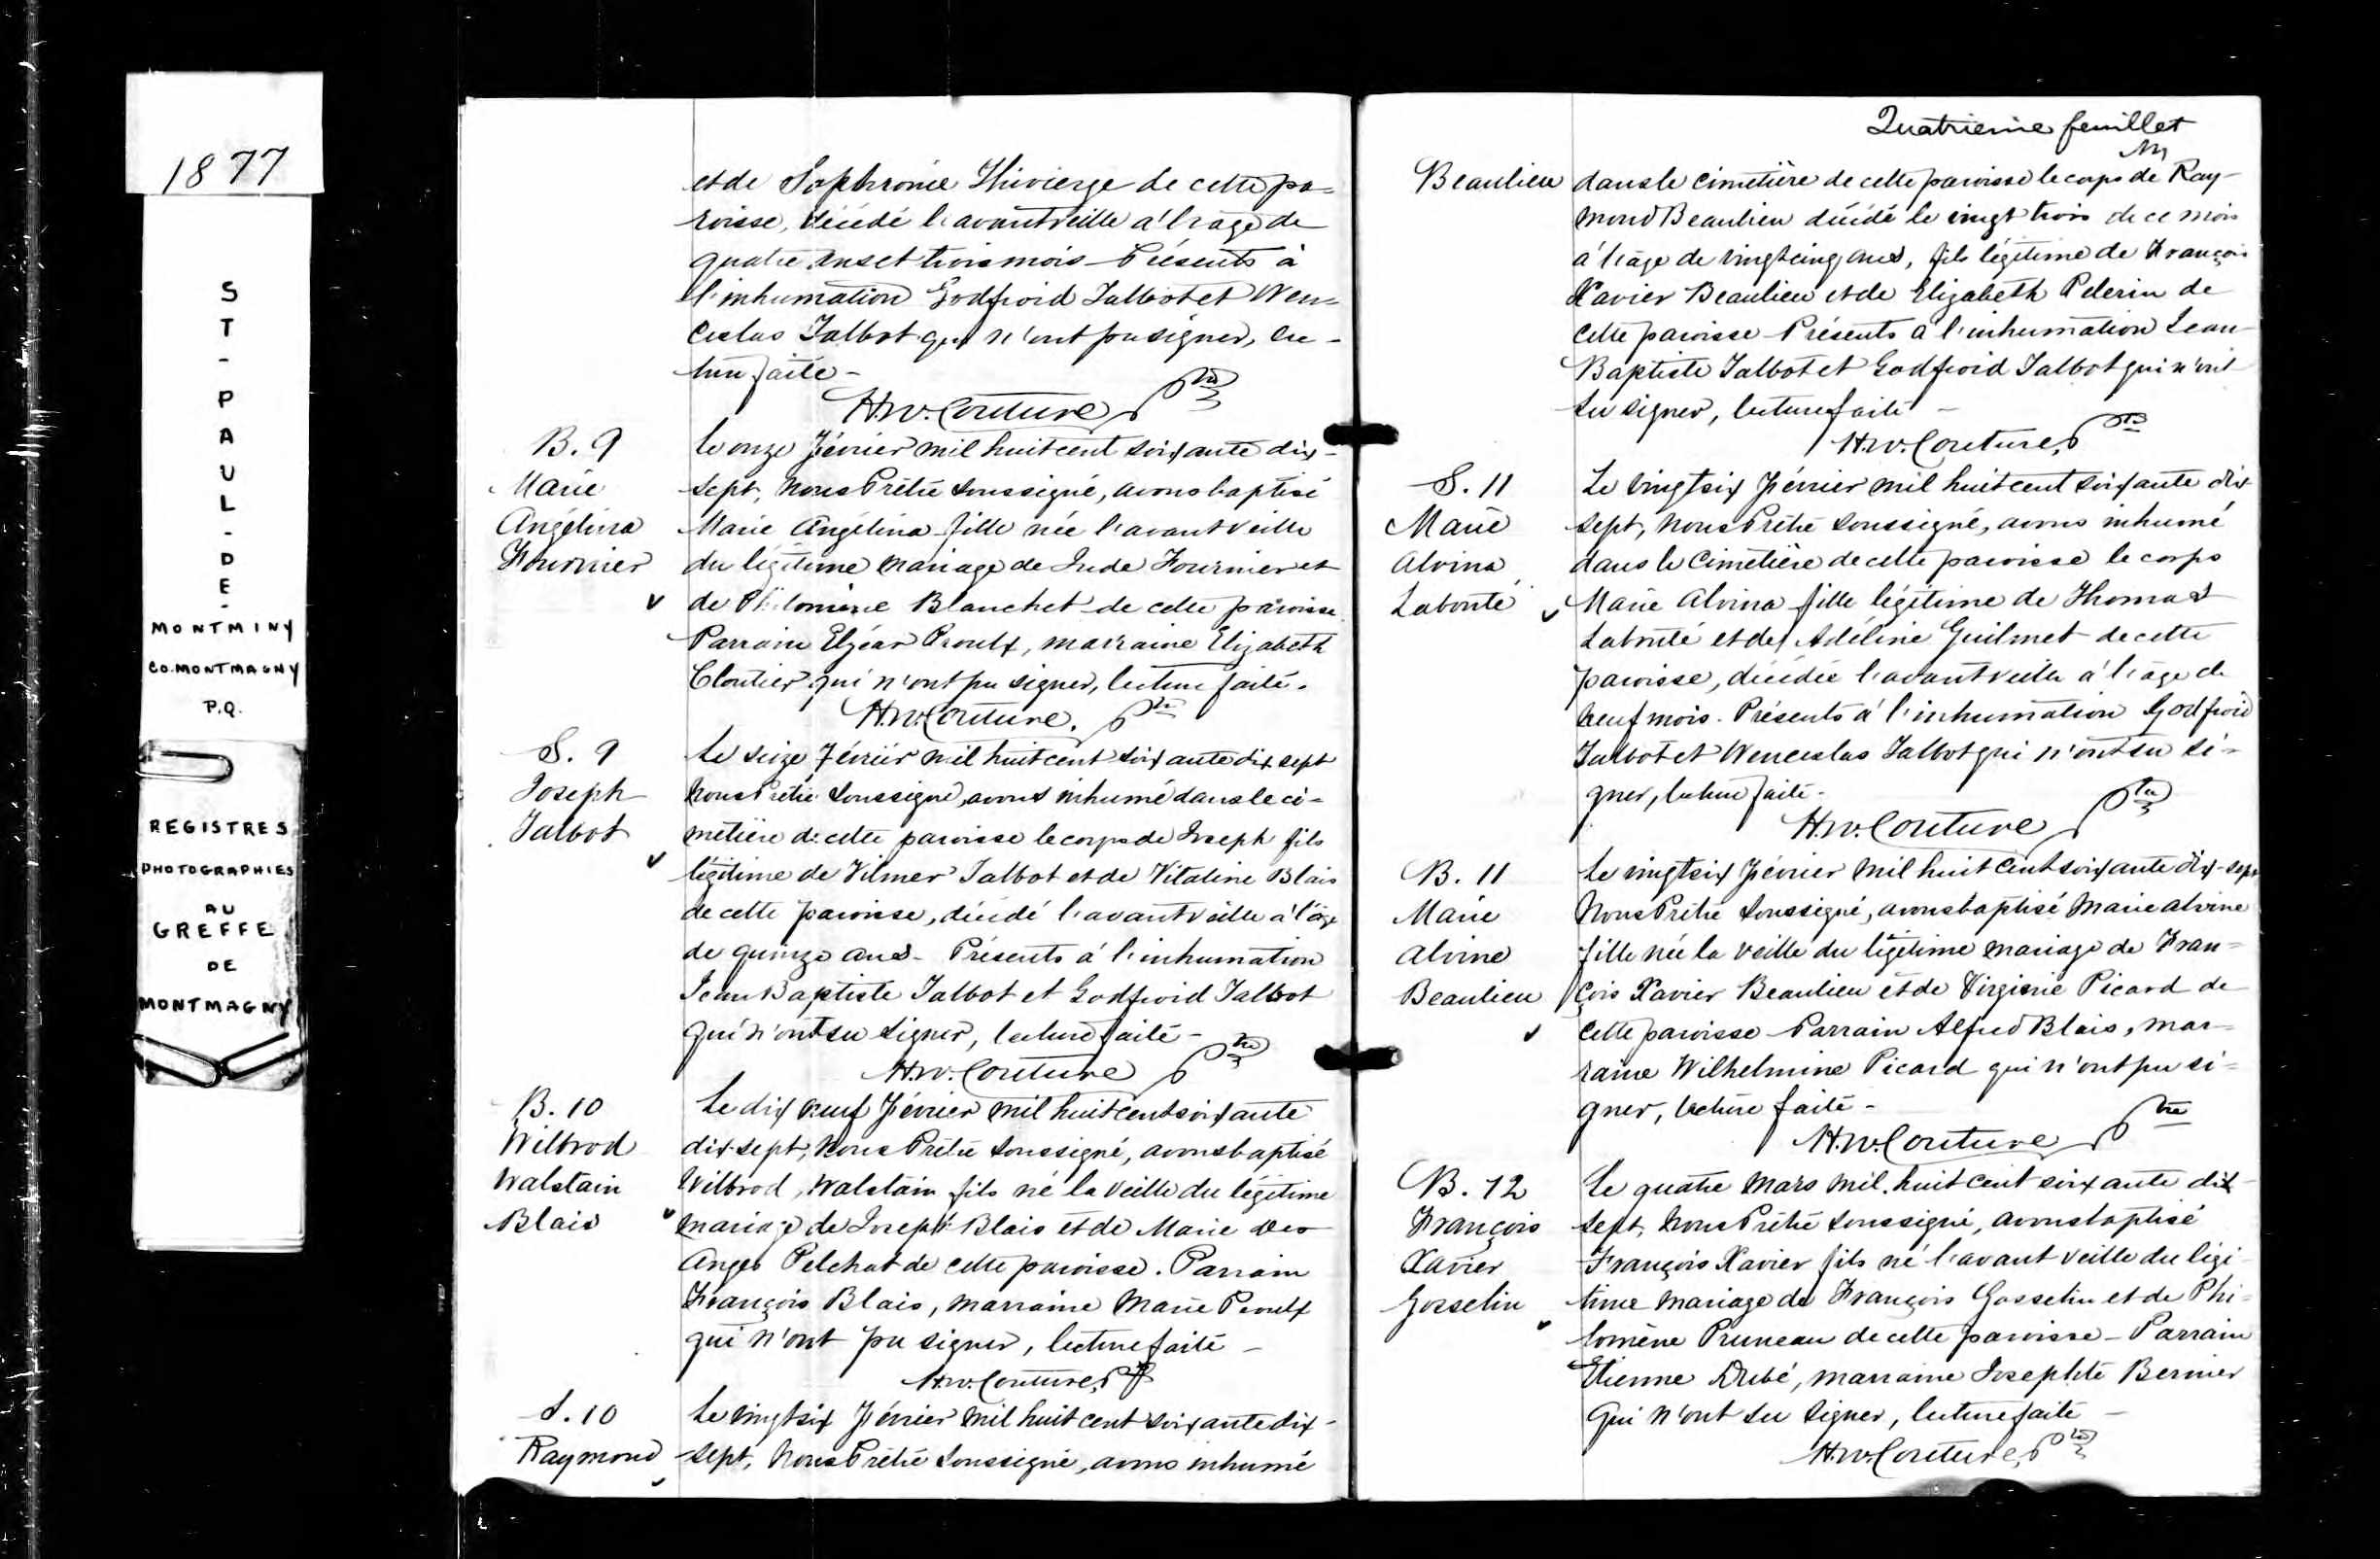 1877
ST-PAUL-DE-
MONTMINY
CO. MONTMAGNY
P.Q.
REGISTRES
PHOTOGRAPHIES
AU
GREFFE
DE
MONTMAGNY
et de Sophronie Thivierge de cette pa=
roisse, décédé l'avantveille à l'âge de
quatre ans et trois mois - Présents à
l'inhumation Godfroid Talbot et Wen=
ceslas Talbot qui n'ont pu signer, lec-
ture faite -
H.W. Couture Ptre
B. 9
Marie
Angélina
Fournier
Le onze Février mil huit cent soixante dix-
sept, Nous Prêtre soussigné, avons baptisé
Marie Angélina fille née l'avant veille
du légitime mariage de Jude Fournier et
de Philomène Blanchet de cette paroisse
Parrain Elzéar Proulx, marraine Elizabeth
Cloutier qui n'ont pu signer, lecture faite.
H.W. Couture. Ptre
S. 9
Joseph
Talbot
Le seize Février mil huit cent soixante dix sept
Nous Prêtre soussigné, avons inhumé dans le ci=
metière de cette paroisse le corps de Joseph fils
légitime de Vilmer Talbot et de Vitaline Blais
de cette paroisse, décédé l'avant veille à l'âge
de quinze ans - Présents à l'inhumation
Jean Baptiste Talbot et Godfroid Talbot
qui n'ont su signer, lecture faite -
H.W. Couture Ptre
B. 10
Wilbrod
Walstain
Blais
Le dix neuf Février mil huit cent soixante
dix-sept, Nous Prêtre soussigné, avons baptisé
Wilbrod, Walstain fils né la veille du légitime
mariage de Joseph Blais et de Marie des
Anges Pelchat de cette paroisse. Parrain
François Blais, marraine Marie Proulx
qui n'ont pu signer, lecture faite -
H.W. Couture, Ptr
S. 10
Raymond
Le vingt six Février mil huit cent soixante dix-
sept, Nous Prêtre soussigné, avons inhumé
Quatrième feuillet
Beaulieu
dans le cimetière de cette paroisse le corps de Ray-
mond Beaulieu décédé le vingt trois de ce mois
à l'âge de vingt cinq ans, fils légitime de François
Xavier Beaulieu et de Elizabeth Pelerin de
cette paroisse - Présents à l'inhumation Jean
Baptiste Talbot et Godfroid Talbot qui n'ont
su signer, lecture faite -
H.W. Couture, Ptre
S. 11
Marie
Alvina
Labonté
Le vingt six Février mil huit cent soixante dix
sept, Nous Prêtre soussigné, avons inhumé
dans le Cimetière de cette paroisse le corps
Marie Alvina fille légitime de Thomas
Labonté et de Adéline Guilmet de cette
paroisse, décédée l'avant veille à l'âge de
neuf mois. Présents à l'inhumation Godfroid
Talbot et Wenceslas Talbot qui n'ont su si=
gner, lecture faite.
H.W. Couture Ptre
B. 11
Marie
Alvine
Beaulieu
Le vingt six Février mil huit cent soixante dix-sept
Nous Prêtre soussigné, avons baptisé Marie Alvine
fille née la veille du légitime mariage de Fran=
çois Xavier Beaulieu et de Virginie Picard de
cette paroisse - Parrain Alfred Blais, mar-
raine Wilhelmine Picard qui n'ont pu si=
gner, lecture faite -
H.W. Couture Ptre
B. 12
François
Xavier
Gosselin
Le quatre Mars mil huit cent soixante dix
sept, Nous Prêtre soussigné, avons baptisé
François Xavier fils né l'avant veille du légi
time mariage de François Gosselin et de Phi=
lomène Pruneau de cette paroisse - Parrain
Etienne Dubé, marraine Josephte Bernier
Qui n'ont su signer, lecture faite -
H.W. Couture, Ptre